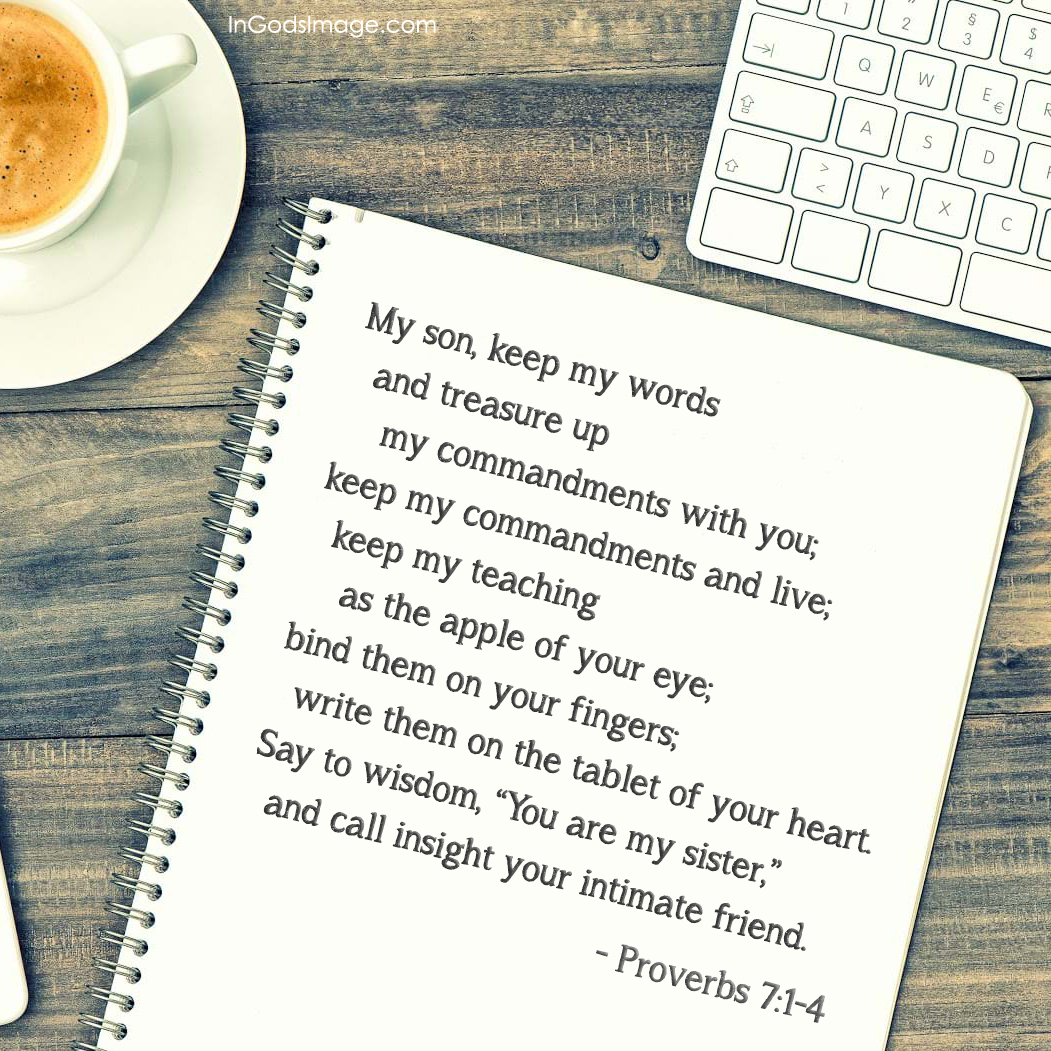 InGodsImage.com
1
"
2
§
3
$
4
Q
W
E
€
R
A
S
D
F
>
<
Y
X
C
My son, keep my words
and treasure up
my commandments with you;
keep my commandments and live;
keep my teaching
as the apple of your eye;
bind them on your fingers;
write them on the tablet of your heart.
Say to wisdom, “You are my sister,”
and call insight your intimate friend.
- Proverbs 7:1-4